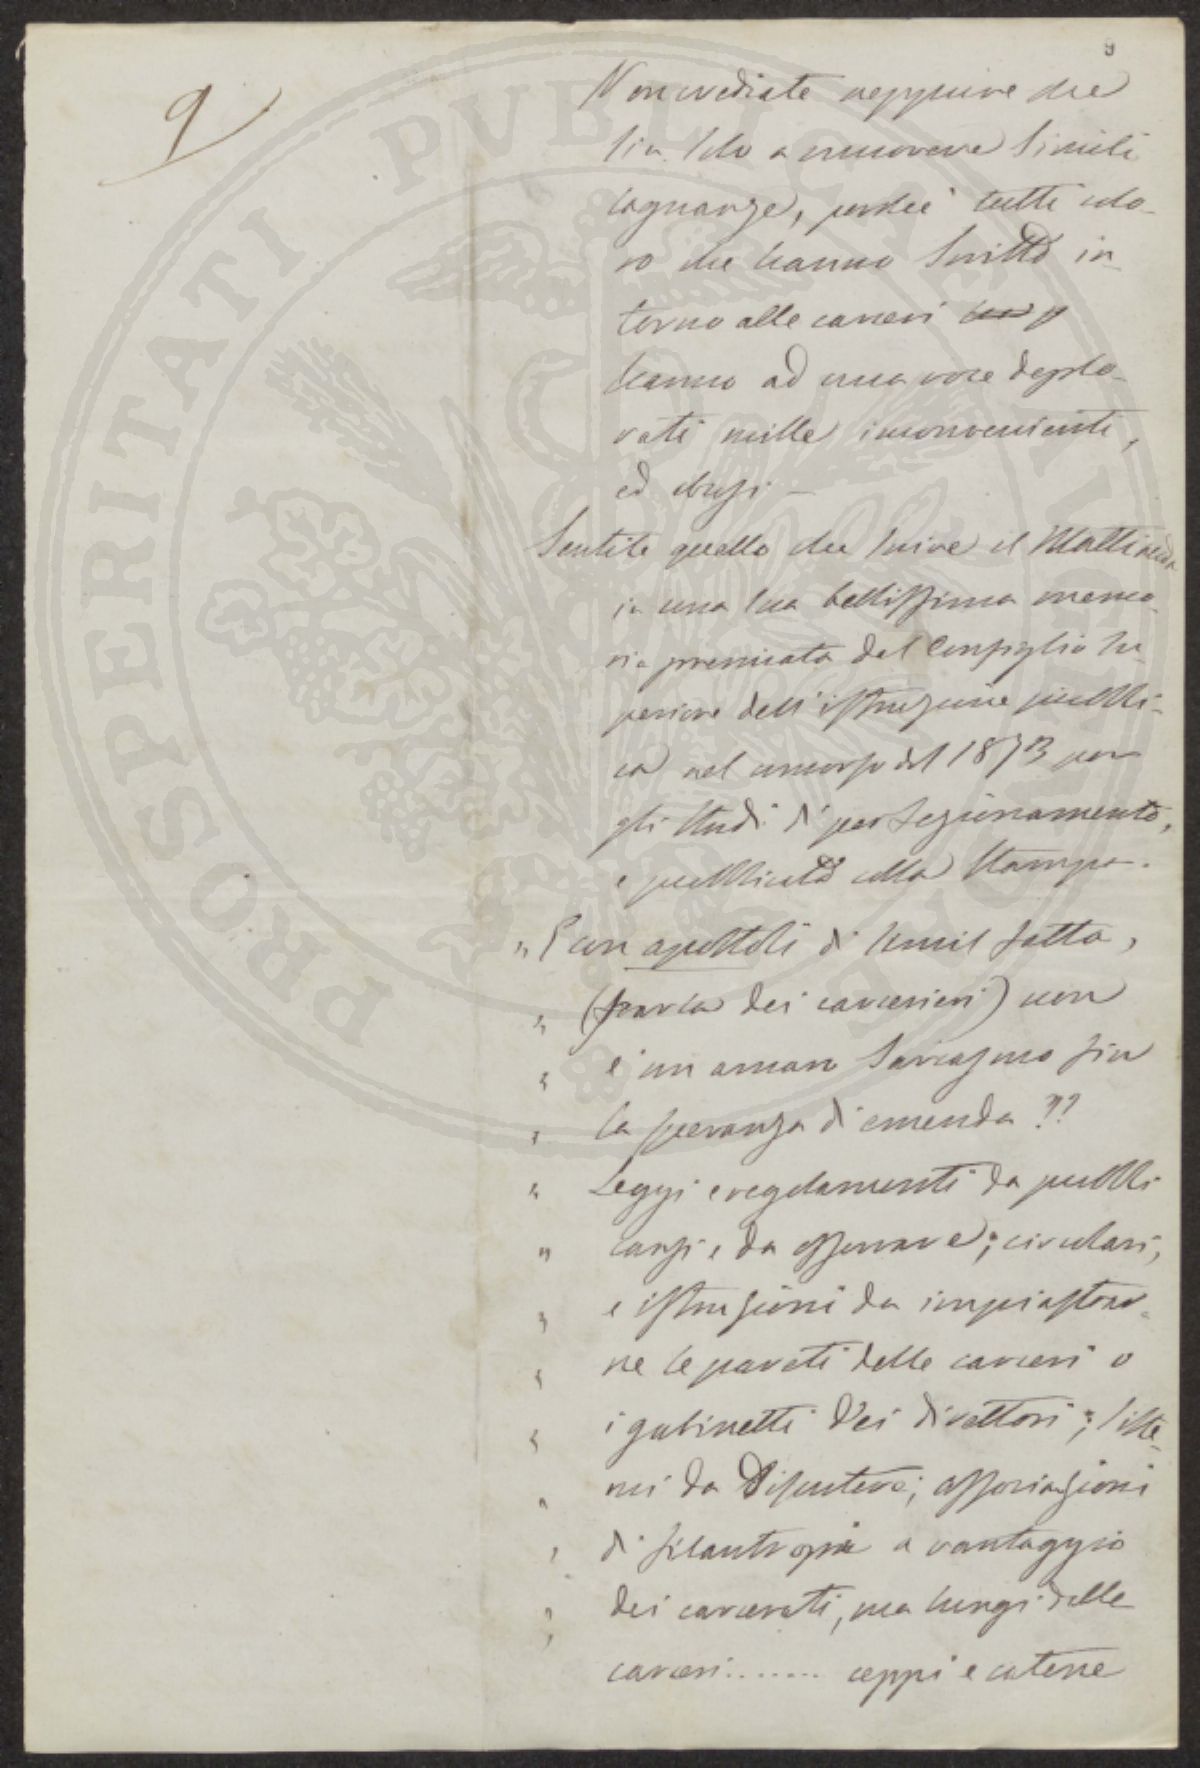 9
9
Non crediate neppure che
sia solo a muovere simili
lagnanze, perchè tutti colo-
ro che hanno scritto in-
torno alle carceri
hanno ad una voce deplo-
rati mille inconvenienti,
ed abusi —
Sentite quello che scrive il
in una sua bellissima memo-
ria premiata dal Consiglio Su-
periore dell'istruzione pubbli-
ca nel concorso del 1873 per
gli studi di perfezionamento,
e pubblicata colla stampa.
"E con apostoli di simil fatta,
" (parla dei carcerieri) non
" è un amaro sarcasmo fin
" la speranza di emenda ??
" Leggi e regolamenti da pubbli
" carsi e da osservare; circolari,
" e istruzioni da impiastrar-
" ne le pareti delle carceri o
" i gabinetti dei direttori; siste-
" mi da disputare; associazioni
" di filantropia a vantaggio
" dei carcerati, ma lungi dalle
" carceri....... ceppi e catene
PROSPERITATI PUBLICAE AUGENDAE